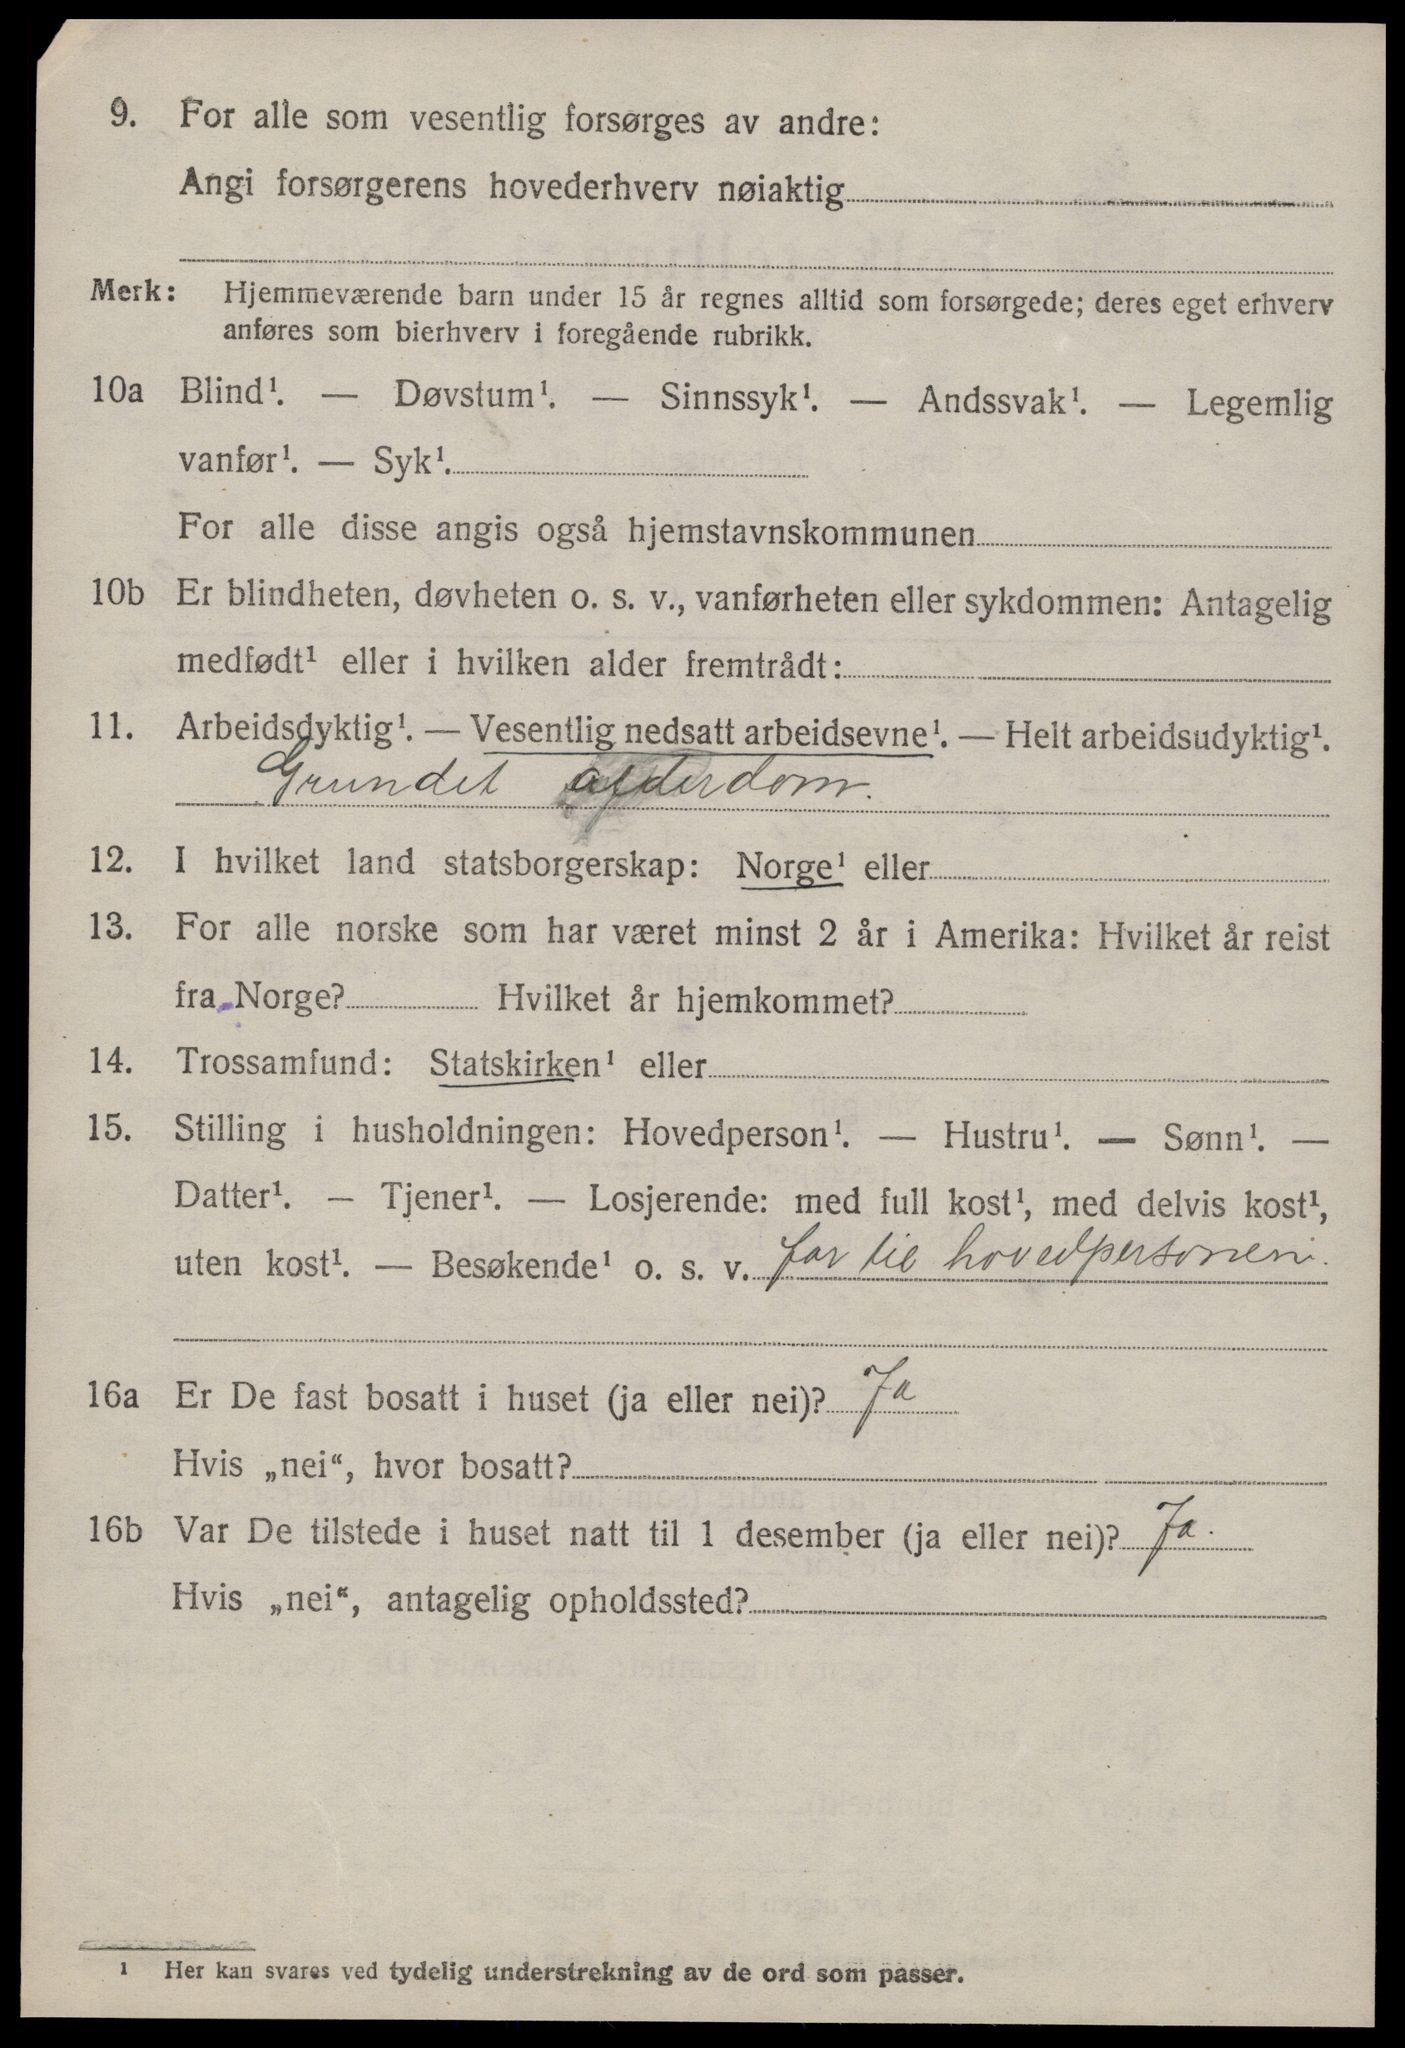 9. For alle som vesentlig forsørges av andre:
Angi forsørgerens hovederhverv nøiaktig
Merk: Hjemmeværende barn under 15 år regnes alltid som forsørgede; deres eget erhverv
anføres som bierhverv i foregående rubrikk.
10a Blind¹. — Døvstum¹. — Sinnssyk¹. — Andssvak¹. — Legemlig
vanfør¹. — Syk¹.
For alle disse angis også hjemstavnskommunen
10b Er blindheten, døvheten o. s. v., vanførheten eller sykdommen: Antagelig
medfødt¹ eller i hvilken alder fremtrådt:
11. Arbeidsdyktig¹. — Vesentlig nedsatt arbeidsevne¹. — Helt arbeidsudyktig¹.
Grundet alderdom.
12. I hvilket land statsborgerskap: Norge¹ eller
13. For alle norske som har været minst 2 år i Amerika: Hvilket år reist
fra Norge? Hvilket år hjemkommet?
14. Trossamfund: Statskirken¹ eller
15. Stilling i husholdningen: Hovedperson¹. — Hustru¹. — Sønn¹. —
Datter¹. — Tjener¹. — Losjerende: med full kost¹, med delvis kost¹,
uten kost¹. — Besøkende¹ o. s. v. far til hovedpersonen.
16a Er De fast bosatt i huset (ja eller nei)? Ja
Hvis „nei“, hvor bosatt?
16b Var De tilstede i huset natt til 1 desember (ja eller nei)? Ja.
Hvis „nei“, antagelig opholdssted?
¹ Her kan svares ved tydelig understrekning av de ord som passer.